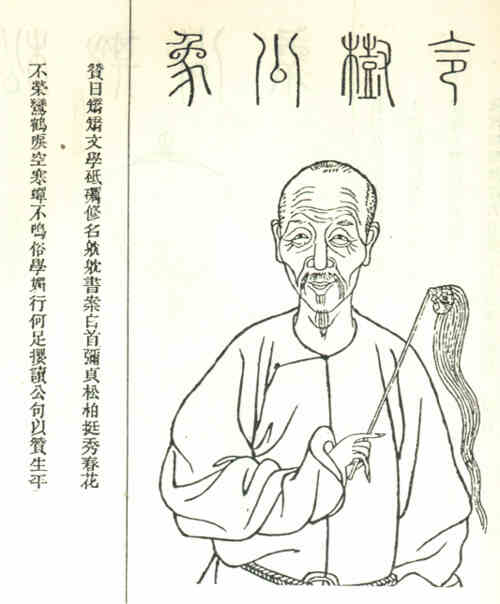 令樹公象
贊曰矯矯文學砥礪修名躭躭書案白首彌貞松柏挺秀春花
不榮鸞鶴唳空寒蟬不鳴俗學媚行何足攖讀公句以贊生平